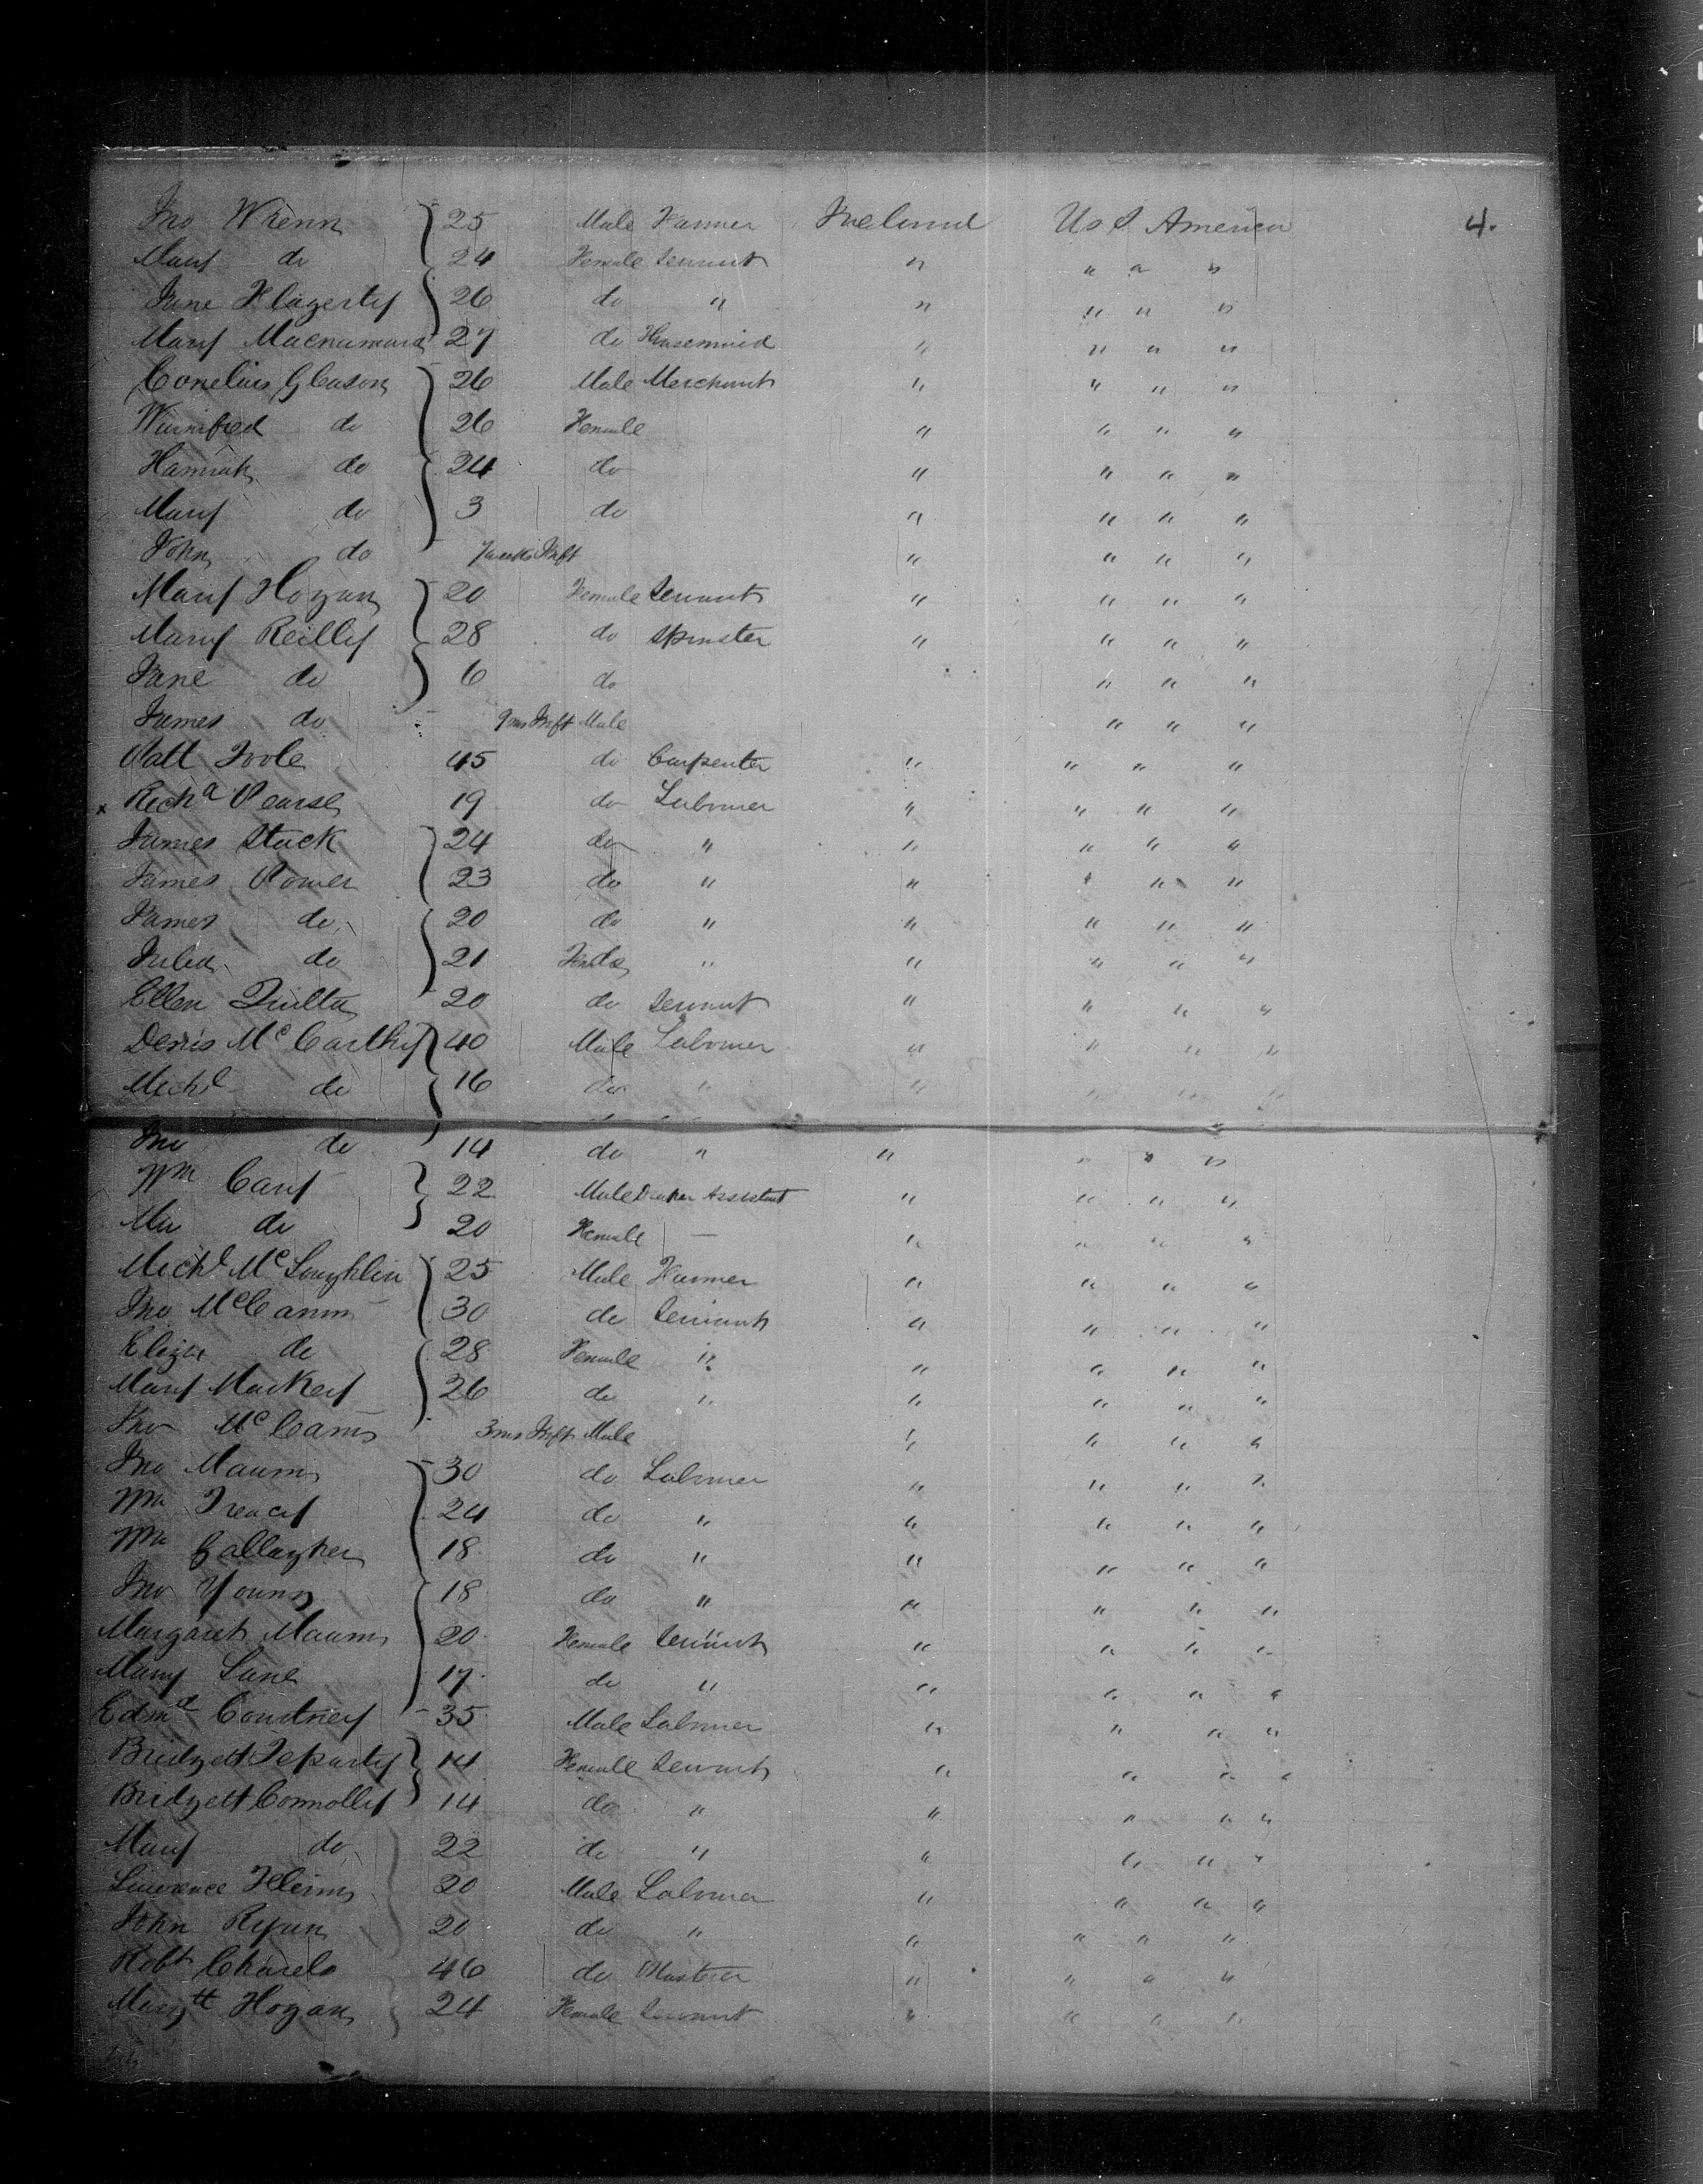 Jno Wrenn 25 Male Farmer Ireland U S America 4.
Mary do 24 Female Servant " " " "
Jane Flagerty 26 do " " " " "
Mary Macnamara 27 do Housemaid " " " "
Cornelius Gleason 26 Male Merchant " " " "
Winnifred do 26 Female " " " "
Hannah do 24 do " " " "
Mary do 3 do " " " "
John do Inft " " " "
Mary Hogan 20 Female Servant " " " "
Mary Reilly 28 do Spinster " " " "
Jane do 6 do " " "
James do 9 ms Inft Male " " "
Patt Toole 45 do Carpenter " " " "
x Richd Pearse 19 do Labourer " " " "
James Stack 24 do " " " " "
James Power 23 do " " " " "
James do 20 do " " " " "
Julia do 21 " " " " "
Ellen Quilta 20 do Servant " " " "
Denis McCarthy 40 Male Labourer " " " "
Michl do 16 do " " " " "
Jno do 14 do " " " " "
Wm Cary 22 Male Draper Assistant " " " "
do 20 Female — " " " "
Michl McLoughlin 25 Male Farmer " " " "
Jno McCann 30 do Servant " " " "
Eliza do 28 Female " " " " "
Mary Mackey 26 do " " " " "
Jno McCann 3 ms Inft Male " " " "
Jno Maum 30 do Labourer " " " "
Wm Treacy 24 do " " " " "
Wm Gallagher 18 do " " " " "
Jno Young 18 do " " " " "
Margaret Maum 20 Female Servant " " " "
Mary Lane 17 do " " " " "
Edmd Courtney 35 Male Labourer " " " "
Bridgett 14 Female Servant " " " "
Bridgett Connolly 14 do " " " " "
Mary do 22 do " " " " "
Lawrence 20 Male Labourer " " " "
John Ryan 20 do " " " " "
Robt Charels 46 do Plasterer " " " "
Margtt Hogan 24 Female Servant " " " "